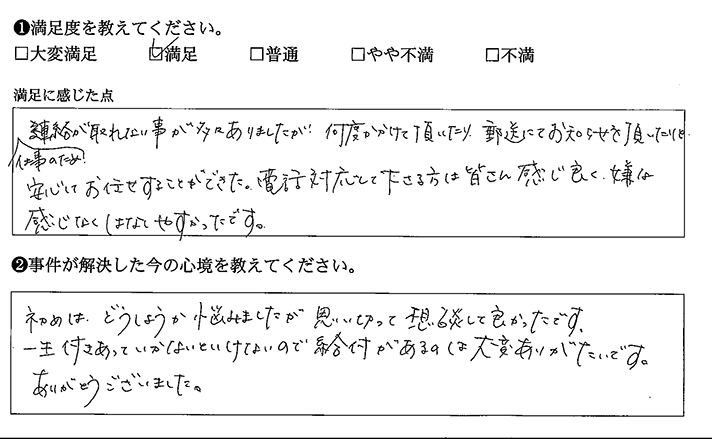 ❶満足度を教えてください。
□大変満足 ☑満足 □普通 □やや不満 □不満
満足に感じた点
仕事のため、連絡が取れない事が多々ありましたが、何度かかけて頂いたり、郵送にてお知らせを頂いたりと
安心してお任せすることができた。電話対応して下さる方は皆さん感じ良く、嫌な
感じなくはなしやすかったです。
❷事件が解決した今の心境を教えてください。
初めは、どうしようか悩みましたが思い切って相談して良かったです。
一生付きあっていかないといけないので給付があるのは大変ありがたいです。
ありがとうございました。